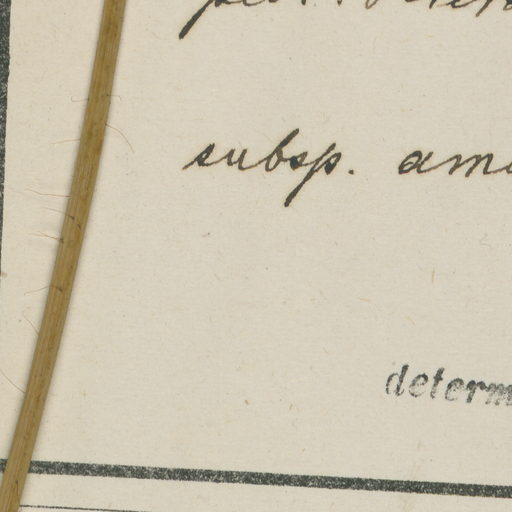 subsp. ama
determ